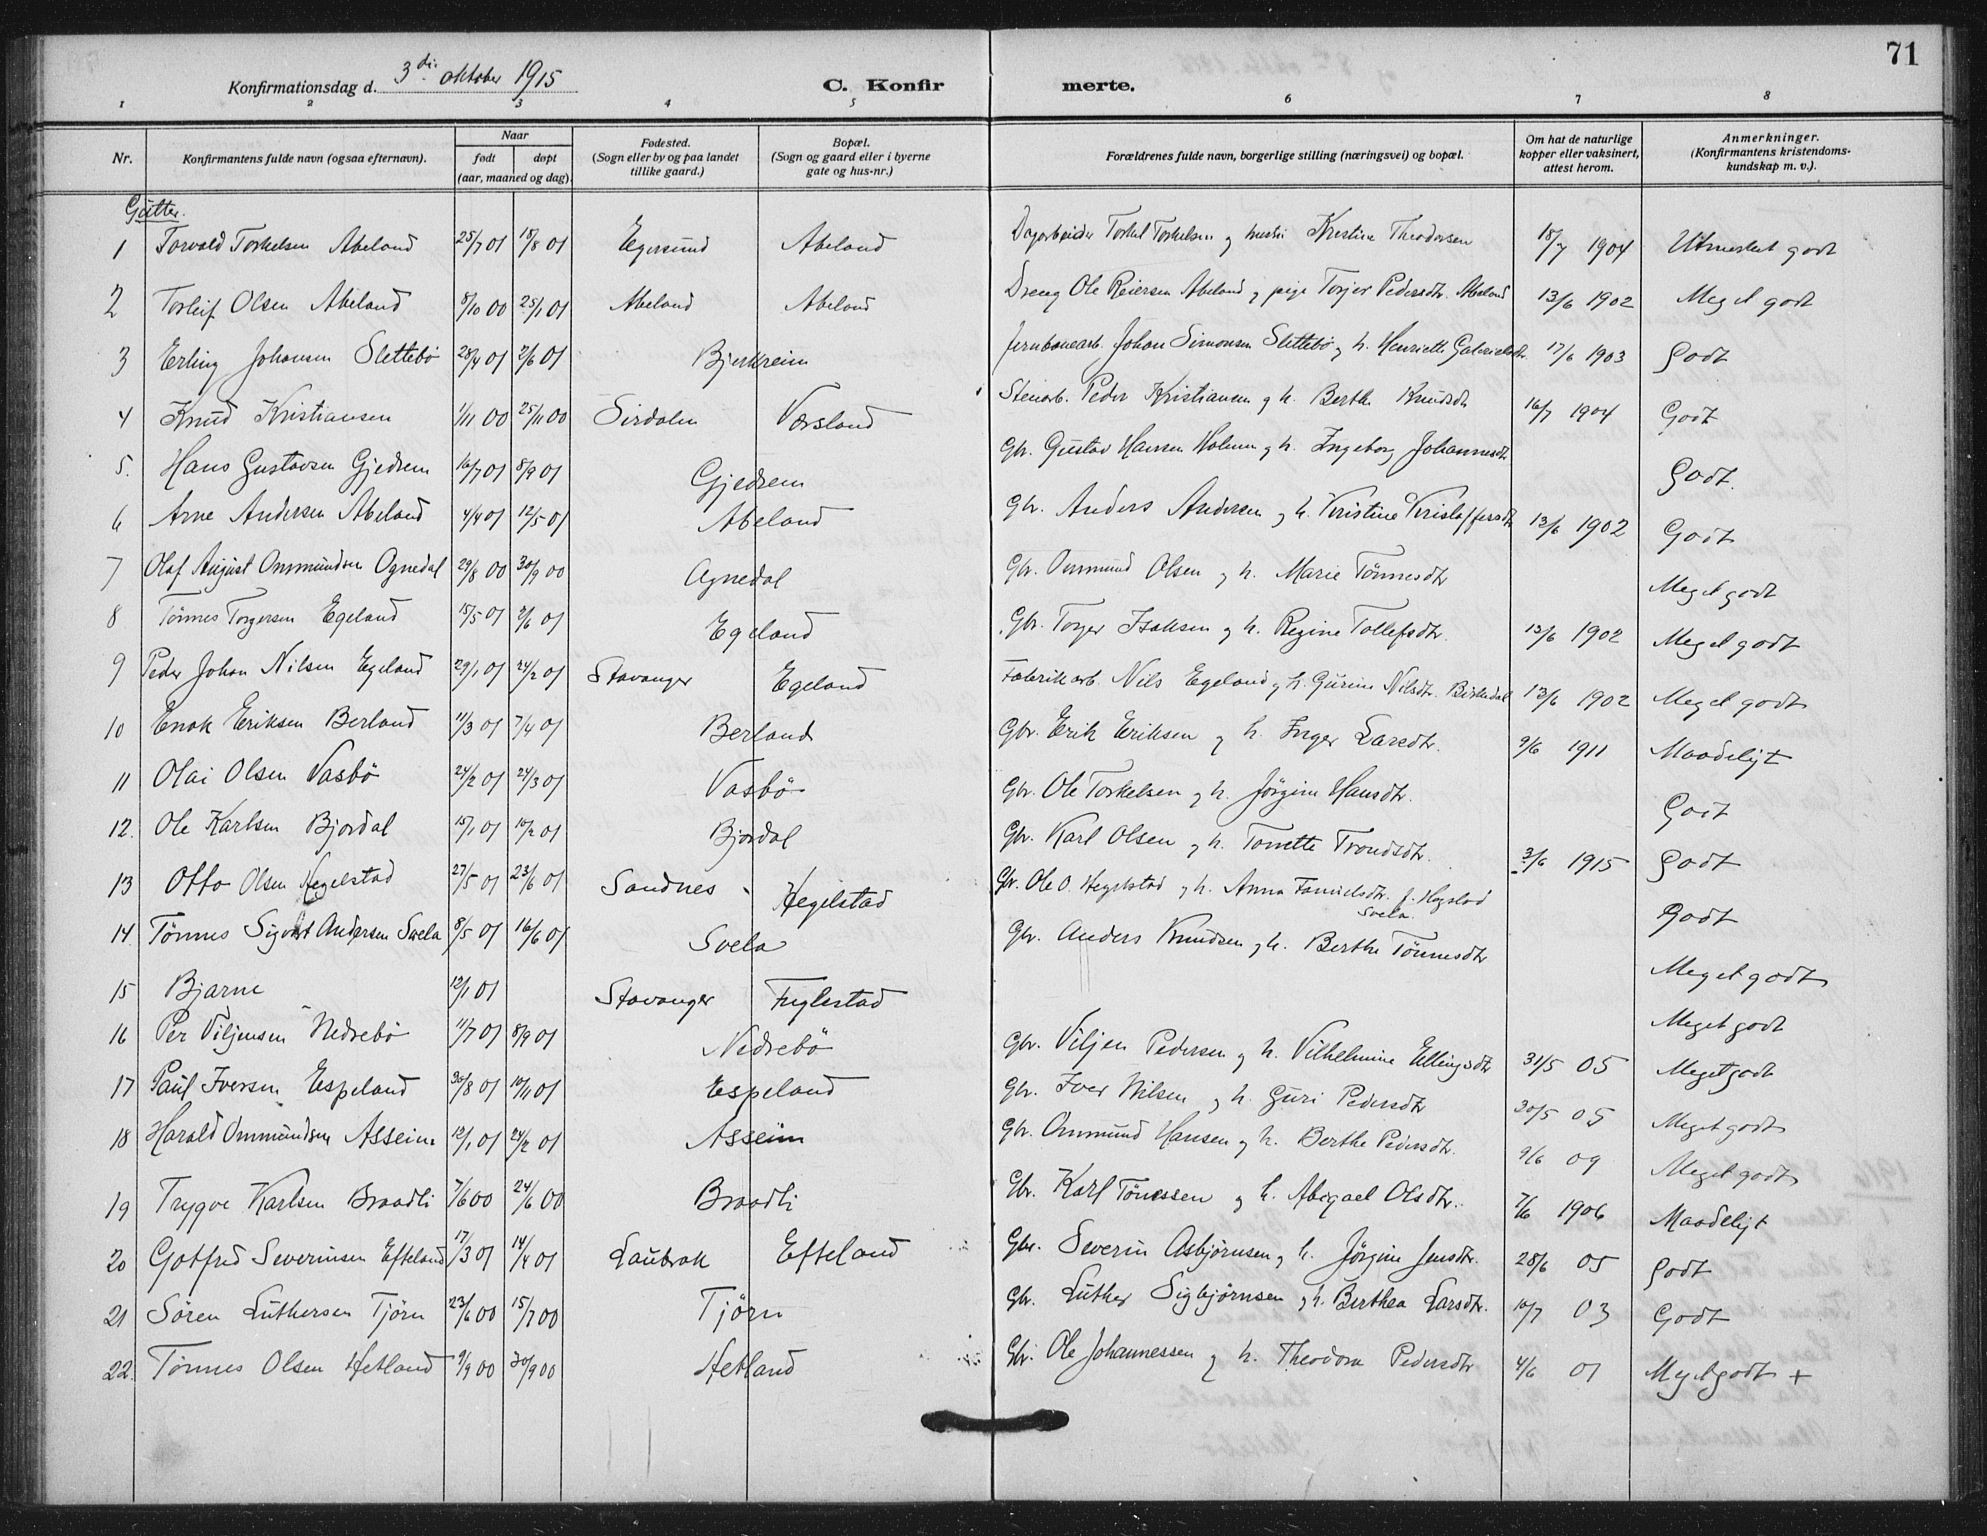 71
Konfirmationsdag d. 3die oktober 1915
C. Konfirmerte.
1 2 3 4 5 6 7 8
Nr. Konfirmantens fulde navn (ogsaa efternavn). Naar født døpt (aar, maaned og dag). Fødested. (Sogn eller by og paa landet tillike gaard.) Bopæl. (Sogn og gaard eller i byerne gate og hus-nr.) Forældrenes fulde navn, borgerlige stilling (næringsvei) og bopæl. Om hat de naturlige kopper eller vaksinert, attest herom. Anmerkninger. (Konfirmantens kristendomskundskap m. v.).
Gutter.
1 Torvald Torkelsen Abeland 25/7 01 18/8 01 Egersund Abeland Dagarbeider Torkel Torkelsen og hustru Kristine Theodorsen 18/7 1904 Utmerket godt
2 Torleif Olsen Abeland 8/10 00 25/1 01 Abeland Abeland Dreng Ole Reiersen Abeland og pige Torjer Pedersdtr. Abeland 13/6 1902 Meget godt
3 Erling Johansen Slettebö 28/4 01 2/6 01 Bjerkreim Jernbanearb. Johan Simonsen Slettebö og h. Henriette Gabrielsdtr. 17/6 1903 Godt
4 Knud Kristiansen 1/11 00 25/11 00 Sirdalen Vorsland Stenarb. Peder Kristiansen og h. Berthe Knudsdtr 16/7 1904 Godt
5. Hans Gustavsen Gjedrem 16/7 01 8/9 01 Gjedrem Gbr. Gustav Hansen Holmen og h. Ingeborg Johannesdtr Godt.
6 Arne Andersen Abeland 4/4 01 12/5 01 Abeland Gbr. Anders Andersen og h. Kristine Kristoffersdtr 13/6 1902 Godt
7 Olaf August Ommundsen Ognedal 29/8 00 30/9 00 Ognedal Gbr. Ommund Olsen og h. Marie Tönnesdtr Meget godt
8 Tönnes Torgersen Egeland 15/5 01 2/6 01 Egeland Gbr. Torger Isaksen og h. Regine Tollefsdtr. 13/6 1902 Meget godt
9 Peder Johan Nilsen Egeland 29/1 01 24/2 01 Stavanger Egeland Fabrikarb. Nils Egeland og h. Gurine Nilsdtr. Birkedal 13/6 1902 Meget godt
10 Enok Eriksen Berland 11/3 01 7/4 01 Berland Gbr. Erik Eriksen og h. Inger Larsdtr. 9/6 1911 Maadeligt
11 Olai Olsen Vasbö 24/2 01 24/3 01 Vasbö Gbr. Ole Torkelsen og h. Jörgine Hansdtr. Godt
12. Ole Karlsen Bjordal 15/1 01 10/2 01 Bjordal Gbr. Karl Olsen og h. Tonette Trondsdtr. 3/6 1915 Godt
13 Otto Olsen Hegelstad 27/5 01 23/6 01 Sandnes Hegelstad Gbr. Ole O. Hegelstad og h. Anna Tanielsdtr. f. Svela Godt
14 Tönnes Sigvart Andersen Svela 8/5 01 16/6 01 Svela Gbr. Anders Knudsen og h. Berthe Tönnesdtr Meget godt
15 Bjarne 12/1 01 Stavanger Fuglestad Meget godt
16 Per Viljensen Nedrebö 11/7 01 8/9 01 Nedrebö Gbr. Viljen Pedersen og h. Vilhelmine Ellingsdtr 31/5 05 Meget godt
17 Paul Iversen Espeland 30/8 01 10/11 01 Espeland Gbr. Iver Nilsen og h. Guri Pedersdtr 30/5 05 Meget godt
18 Harald Ommundsen Asseim 12/1 01 24/2 01 Asseim Gbr. Ommund Hansen og h. Berthe Pedersdtr. 9/6 09 Meget godt
19 Trygve Karlsen Braadli 7/6 00 24/6 00 Braadli Gbr. Karl Tönessen og h. Abigael Olsdtr. 7/6 1906 Maadeligt
20 Gotfred Severinsen Efteland 17/3 01 14/4 01 Laubrok Efteland Gbr. Severin Asbjörnsen og h. Jörgine Jensdtr. 28/6 05 Godt
21 Sören Luthersen Tjörn 23/6 00 15/7 00 Tjörn Gbr. Luther Sigbjörnsen og h. Berthea Larsdtr. 10/7 03 Godt
22. Tönnes Olsen Hetland 9/9 00 30/9 00 Hetland Gbr. Ole Johannessen og h. Theodora Pedersdtr 4/6 01 Meget godt +